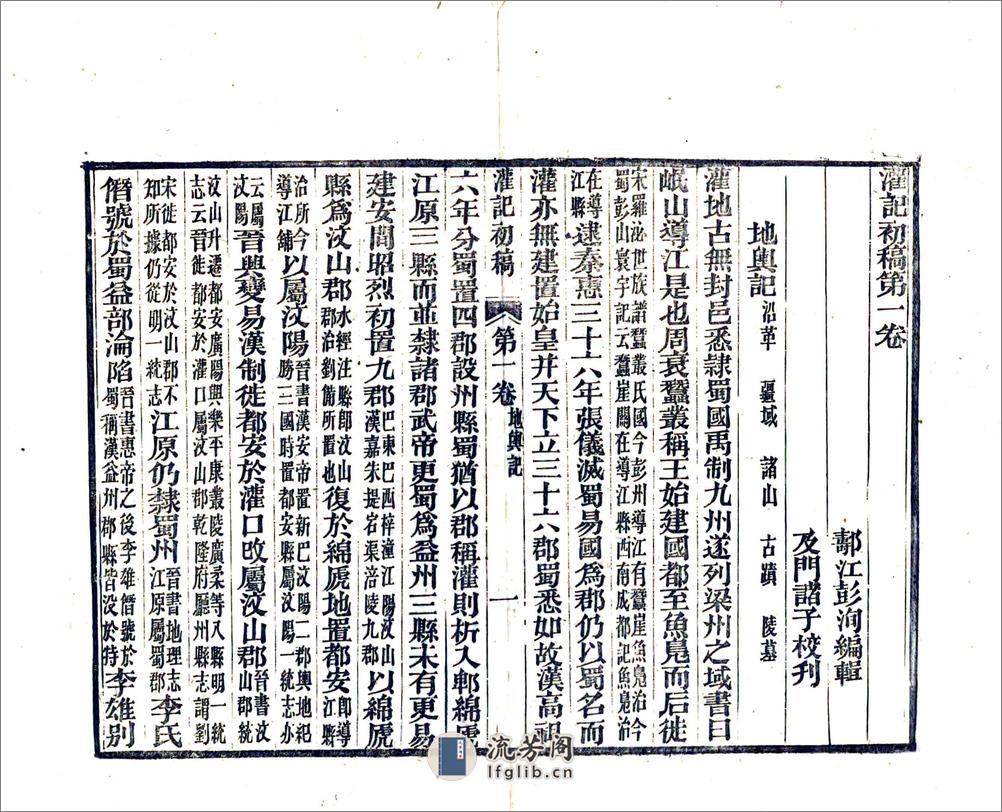 灌記初稿第一卷
鄢江彭洵編輯
及門諸子校刋
地輿記 沿革 疆域 諸山 古蹟 陵墓
灌地古無封邑悉隸蜀國禹制九州遂列梁州之域書曰
岷山導江是也周衰蠶叢稱王始建國都至魚鳧而后徙
宋羅泌世族譜蠶叢氏國今彭州導江有蠶崖魚鳧治今
蜀彭山寰宇記云蠶崖關在導江縣西南成都記魚鳧治
在導江縣 逮秦惠三十六年張儀滅蜀易國為郡仍以蜀名而
灌亦無建置始皇井天下立三十六郡蜀悉如故漢高祖
灌記初稿 第一卷 地輿記 一
六年分蜀置四郡設州縣蜀猶以郡稱灌則析入郫綿虒
江原三縣而並隸諸郡武帝更蜀為益州三縣未有更易
建安間昭烈初置九郡 巴東巴西梓潼江陽汶山漢嘉朱提宕渠涪陵九郡 以綿虒
縣為汶山郡 水經注縣即汶山郡治劉備所置也 復於綿虒地置都安 即導江縣
治所今導江舖 以屬汶陽 晉書漢安帝置新巴汶陽二郡輿地紀勝三國時置都安縣屬汶陽一統志亦
云屬汶陽 晉興變易漢制徙都安於灌口改屬汶山郡 晉書汶山郡統
汶山升遷都安廣陽興樂平康蠶陵廣柔等八縣明一統
志云晉徙都安於灌口屬汶山郡乾隆府廳州縣志謂劉
宋徙都安於汶山郡不知所據仍從明一統志 江原仍隸蜀州 晉書地理志江原屬蜀郡 李氏
僭號於蜀益部淪陷 晉書惠帝之後李雄僭號於蜀稱漢益州郡縣皆沒於特 李雄別
流芳閣
lfglib.cn